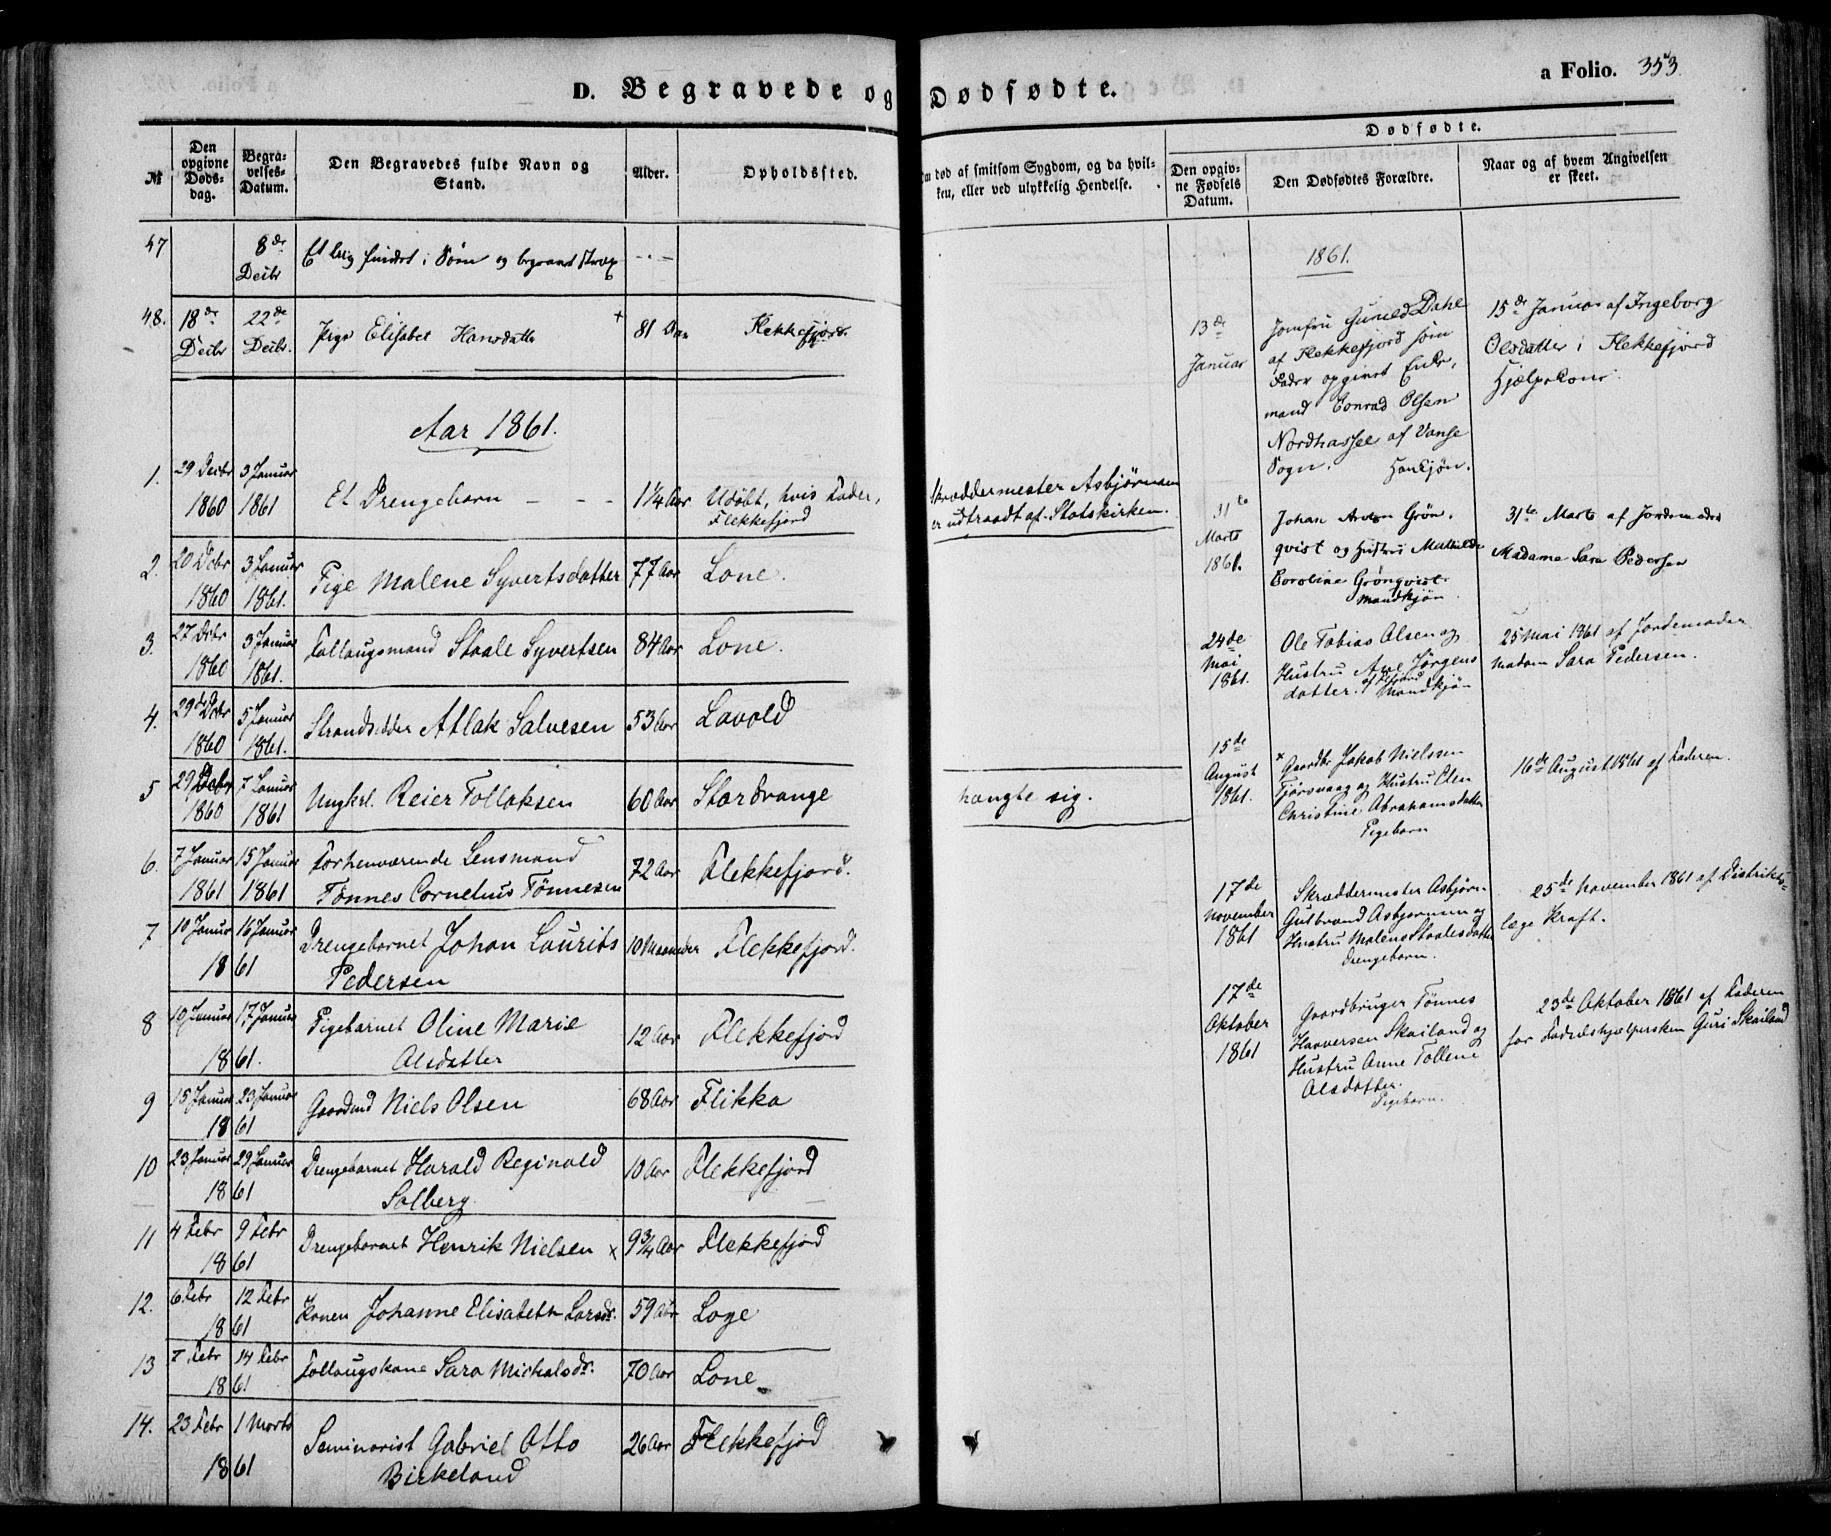 D. Begravede og Dødfødte.
a Folio. 353.
№
Den opgivne Døds-dag.
Begra-velses-Datum.
Den Begravedes fulde Navn og Stand.
Alder.
Opholdssted.
død af smitsom Sygdom, og da hvil-
ken, eller ved ulykkelig Hendelse.
Dødfødte.
Den opgiv-ne Fødsels Datum.
Den Dødfødtes Forældre.
Naar og af hvem Angivelsen er skeet.
47 8de Decbr Et Lig fundet i Søen og begravet
48. 18de Decbr 22de Decbr. Pige Elisabet Hansdatter + 81 Aar Flekkefjord.
Aar 1861.
1. 29 Decbr 1860 3 Januar 1861 Et Drengebarn - - - 1¼ Aar Udøbt, hvis Fader, Flekkefjord
Skræddermester Asbjørnsen
er udtraadt af Statskirken.
2. 20 Dcbr 1860 3 Januar 1861. Pige Malene Syvertsdatter 77 Aar Lone.
3. 27 Dcbr 1860 3 Januar 1861. Follaugsmand Staale Syvertsen 84 Aar Lone.
4. 29de Dcbr 1860 5 Januar 1861. Strandsidder Atlak Salvesen 53 Aar Lavold
5 29 Dcbr 1860 7 Januar 1861 Ungkrl. Reier Tollaksen 60 Aar Stardvange
hængte sig.
6. 7 Januar 1861 15 Januar 1861 Forhenværende Lensmand
Tønnes Cornelius Tønnesen 72 Aar Flekkefjord.
7 10 Januar 16 Januar 1861 Drengebarnet Johan Laurits
Pedersen 10 Maaneder Flekkefjord.
8 10 Januar 17 Januar 1861. Pigebarnet Oline Marie
Olsdatter 12 Aar Flekkefjord
9 15 Januar 23 Januar 1861 Gaardmd Niels Olsen 68 Aar Flikka
10 23 Januar 29 Januar 1861 Drengebarnet Harald Reginald
Solberg 10 Aar Flekkefjord
11 4 Febr 9 Febr 1861 Drengebarnet Henrik Nielsen x 9¾ Aar Flekkefjord
12. 6 Febr 12 Febr 1861 Konen Johanne Elisabeth Larsdr. 59 Aar Loge
13 7 Febr 14 Febr 1861 Follaugskone Sara Michalsdr. 70 Aar Lone
14. 23 Febr 1 Marts 1861 Seminarist Gabriel Otto
Birkeland 26 Aar Flekkefjord
1861.
13de Januar
Jomfru Gunild Dahl
af Flekkefjord som
Fader opgivet Enke-
mand Conrad Olsen
Nordhassel af Vanse
Sogn. Hankjøn.
15de Januar af Ingeborg
Olsdatter i Flekkefjord
Hjælpekone.
31te Marts 1861.
Johan Anton Grøn-
qvist og Hustru Mathilde
Caroline Grønqvist.
Mandkjøn.
31te Marts af Jordemoder
Madame Sara Pedersen
24de Mai 1861.
Ole Tobias Olsen og
Hustru Ane Jørgens
datter. Mandkjøn
25 Mai 1861 af Jordemoder
Madam Sara Pedersen.
15de August 1861.
x Gaardbr Jakob Nielsen
Tjørsvaag og Hustru Elen
Christine Abrahamsdatter
Pigebarn
16de August 1861 af Faderen.
17de November 1861
Skræddermester Asbjørn
Gulbrand Asbjørnsen og
Hustru Malene Staalesdatter
Drengebarn.
25de November 1861 af Distrikts-
læge Kraft.
17de Oktober 1861
Gaardbruger Tønnes
Haaversen Skailand og
Hustru Anne Tollene
Olsdatter.
Pigebarn.
23de Oktober 1861 af Faderen
for Fødselshjælpersken Guri Skailand